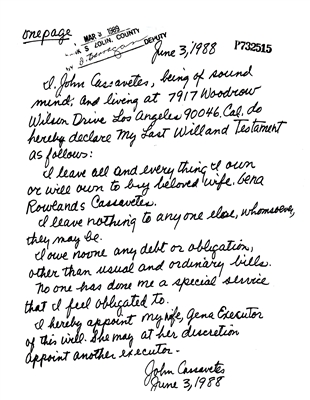 onepage
MAR 3, 1989
COLIN, COUNTY
DEPUTY
June 3, 1988 P732515
I. John Cassavetes, being of sound
mind; and living at 7917 Woodrow
Wilson Drive Los Angeles 90046. Cal. do
hereby declare My Last Will and Testament
as follows:
I leave all and everything I own
or will own to by beloved wife. Gena
Rowlands Cassavetes.
I leave nothing to any one else, whomsoever,
they may be.
I owe no one any debt or obligation,
other than usual and ordinary bills.
No one has done me a special service
that I feel obligated to.
I hereby appoint my wife, Gena Executor
of this will. She may at her discretion
appoint another executor -
John Cassavetes
June 3, 1988